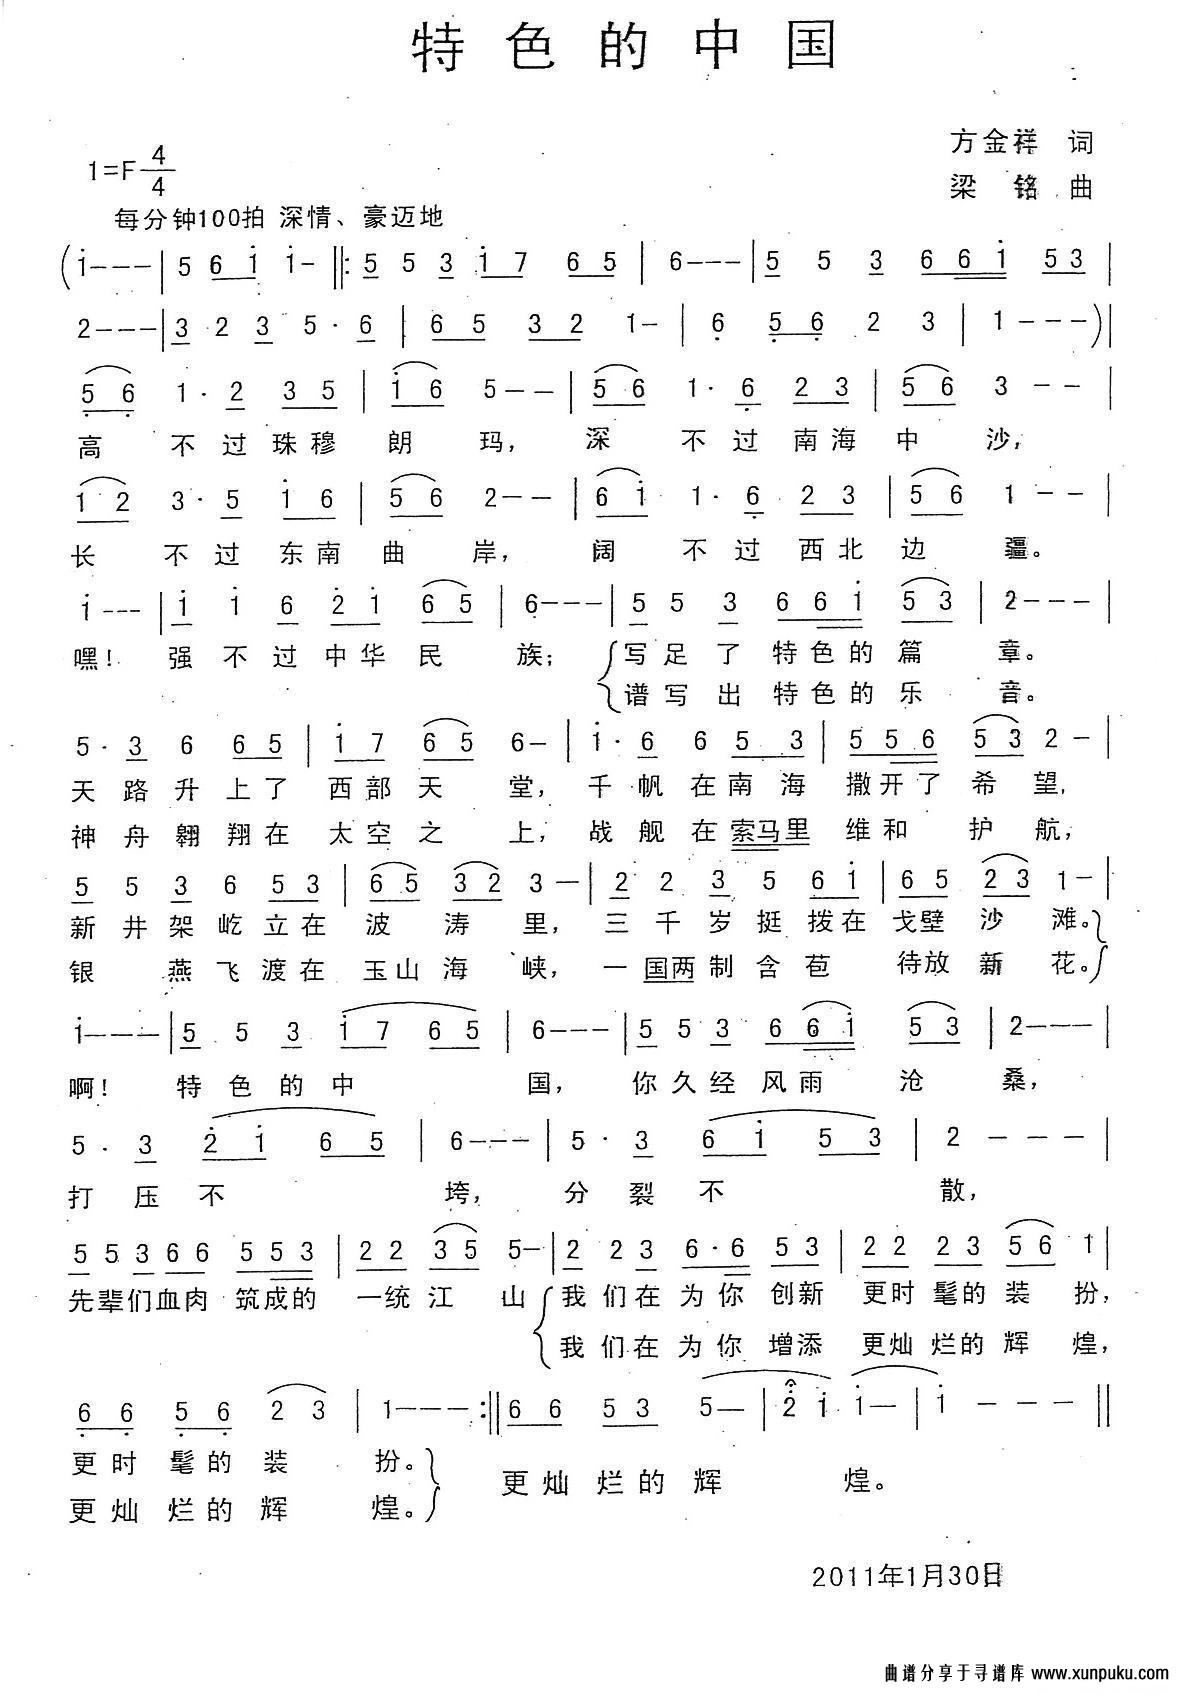 特色的中国
方金祥 词
1=F 4/4
梁铭 曲
每分钟100拍 深情、豪迈地
(i--- | 5 6 i i- ||: 5 5 3 i 7 6 5 | 6--- | 5 5 3 6 6 i 5 3 |
2--- | 3 2 3 5· 6 | 6 5 3 2 1- | 6 5 6 2 3 | 1---) |
5 6 1· 2 3 5 | i 6 5-- | 5 6 1· 6 2 3 | 5 6 3 -- |
高 不过珠穆 朗 玛, 深 不过南海中 沙,
1 2 3· 5 i 6 | 5 6 2-- | 6 i 1· 6 2 3 | 5 6 1 -- |
长 不过东南曲 岸, 阔 不过西北边 疆。
i --- | i i 6 2 i 6 5 | 6--- | 5 5 3 6 6 i 5 3 | 2--- |
嘿! 强不过中华民 族; 写足了 特色的篇 章。
谱写出 特色的乐 音。
5· 3 6 6 5 | i 7 6 5 6- | i· 6 6 5 3 | 5 5 6 5 3 2- |
天路升上了 西部天 堂, 千帆在南海 撒开了希 望,
神舟翱翔在 太空之 上, 战舰在索马里 维和 护 航,
5 5 3 6 5 3 | 6 5 3 2 3- | 2 2 3 5 6 i | 6 5 2 3 1- |
新井架屹立在 波 涛 里, 三千岁挺拨在戈壁 沙 滩。
银 燕飞渡在 玉山海 峡, 一国两制含苞 待放新 花。
i--- | 5 5 3 i 7 6 5 | 6--- | 5 5 3 6 6 i 5 3 | 2--- |
啊! 特色的中 国, 你久经风雨 沧 桑,
5· 3 2 i 6 5 | 6--- | 5· 3 6 i 5 3 | 2 --- |
打压不 垮, 分裂不 散,
5 5 3 6 6 5 5 3 | 2 2 3 5 5- | 2 2 3 6· 6 5 3 | 2 2 2 3 5 6 1 |
先辈们血肉 筑成的 一统江 山 我们在为你创新 更时髦的装 扮,
我们在为你增添 更灿烂的辉 煌,
6 6 5 6 2 3 | 1--- :|| 6 6 5 3 5- | 2 i i- | i --- ||
更时髦的装 扮。
更灿烂的辉 煌。
更灿烂的辉 煌。
2011年1月30日
曲谱分享于寻谱库 www.xunpuku.com